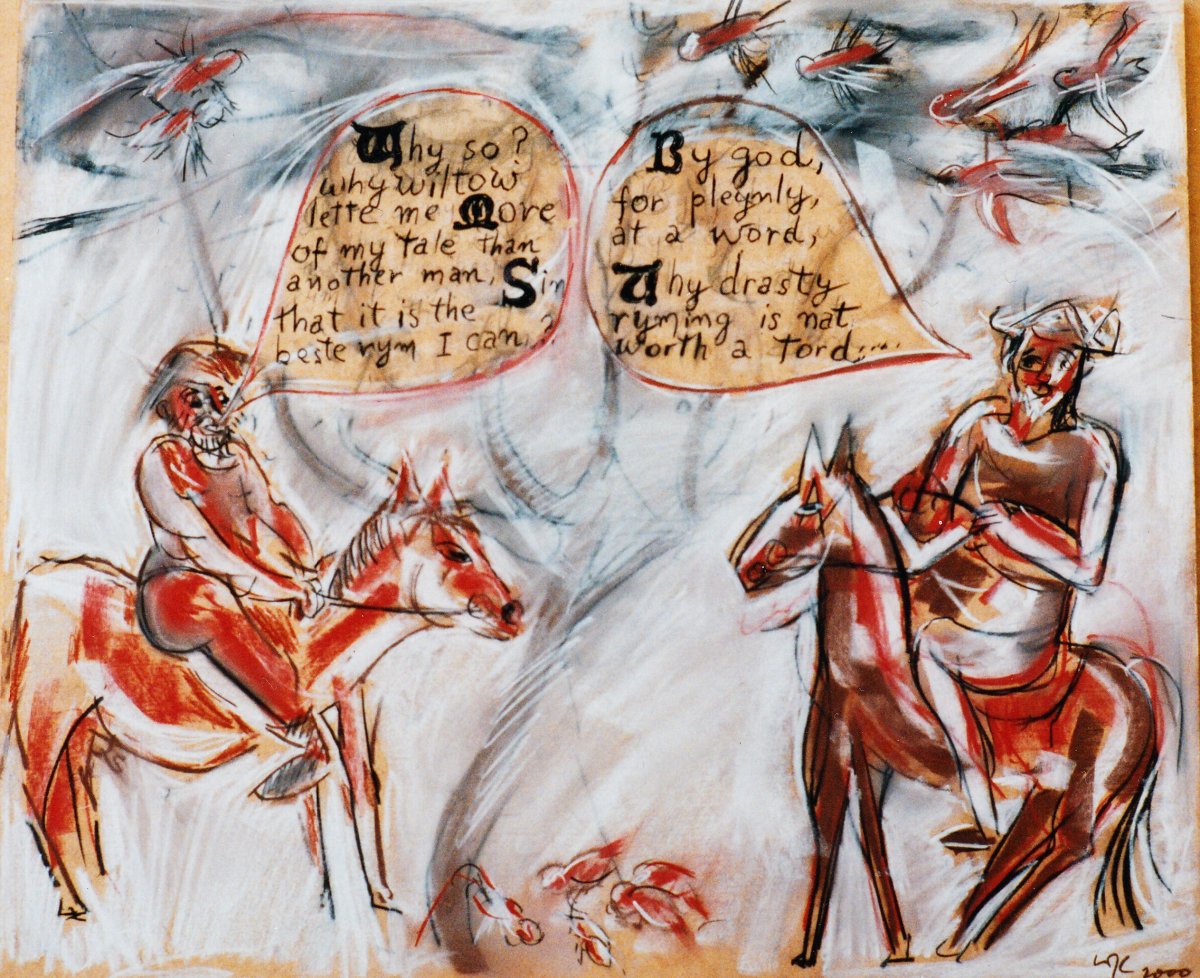 Why so?
why wiltow
lette me More
of my tale than
another man, Sin
that it is the
beste rym I can,?
By god,
for pleynly,
at a word,
Thy drasty
ryming is nat
worth a Tord;....
2000